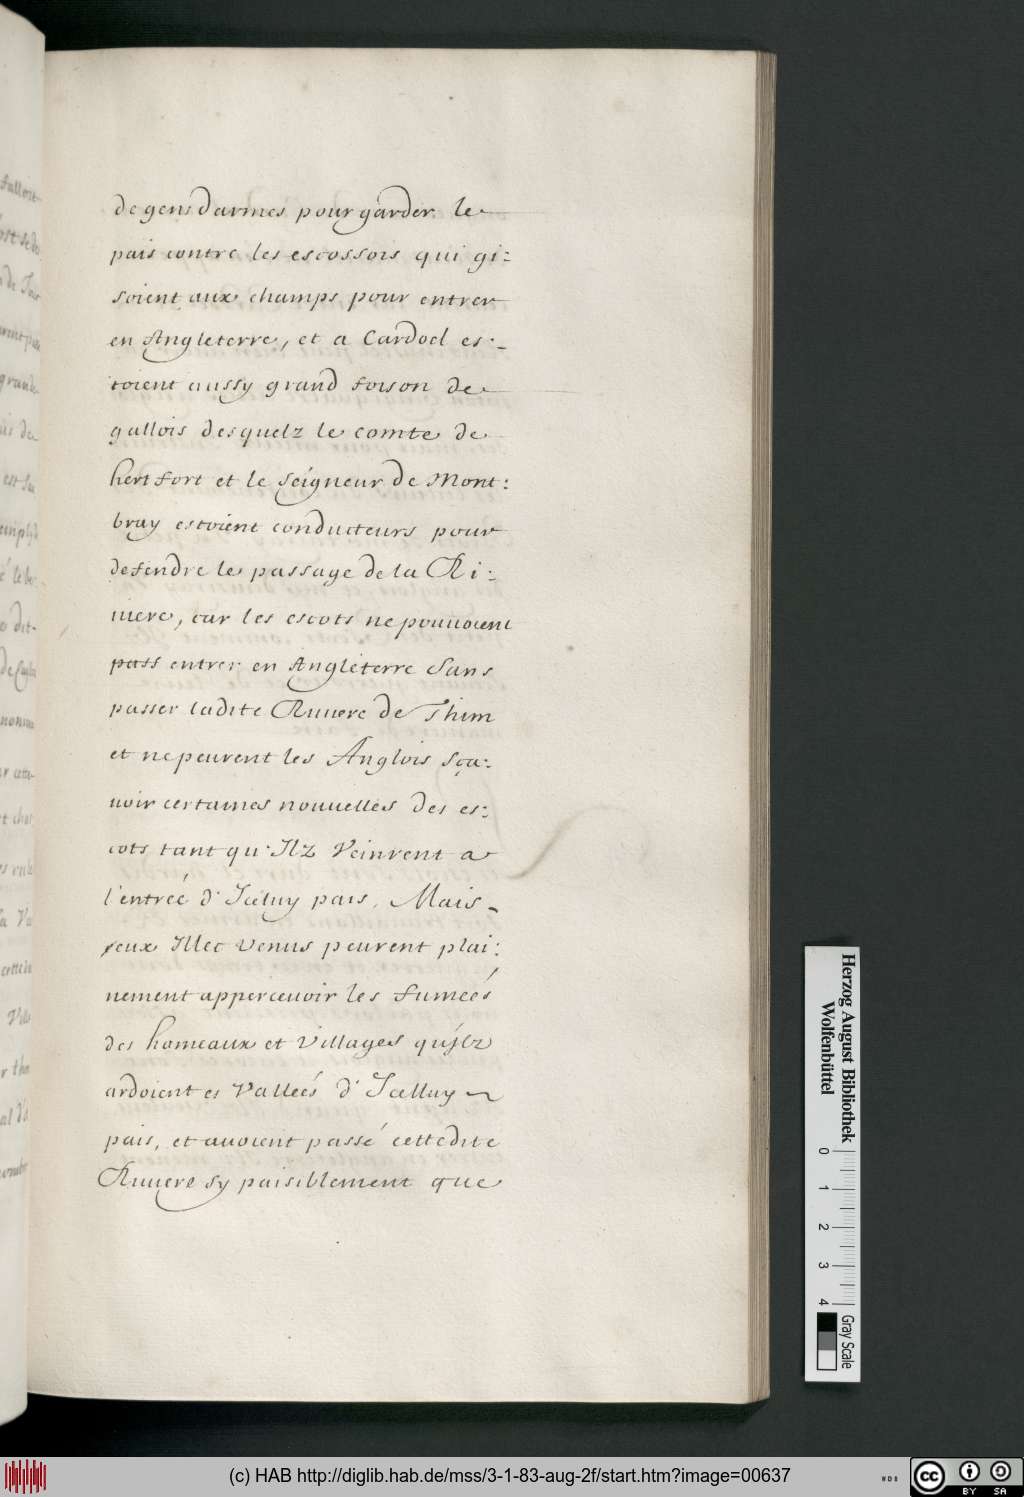 de gens darmes pour garder le
pais contre les escossois qui gi:
soient aux champs pour entrer
en Angleterre, et a Cardoel es:
toient aussy grand foison de
gallois desquelz le comte de
hertfort et le seigneur de Mont:
bray estoient conducteurs pour
defendre le passage de la Ri:
uiere, car les escots ne pouuoient
pass entrer en Angleterre sans
passer ladite Riuiere de Thim
et ne peurent les Anglois sça:
uoir certaines nouuelles des es:
cots tant qu'Ilz veinrent a
l'entreé d'Iceluy pais, Mais
eux Illec venus peurent plai:
nement apperceuoir les fumeés
des hameaux et villages qu'jlz
ardoient es valleés d'Icelluy
pais, et auoient passé cettedite
Riuiere sy paisiblement que
Herzog August Bibliothek
Wolfenbüttel
0 1 2 3 4
Gray Scale
(c) HAB http://diglib.hab.de/mss/3-1-83-aug-2f/start.htm?image=00637
WDB
cc BY SA